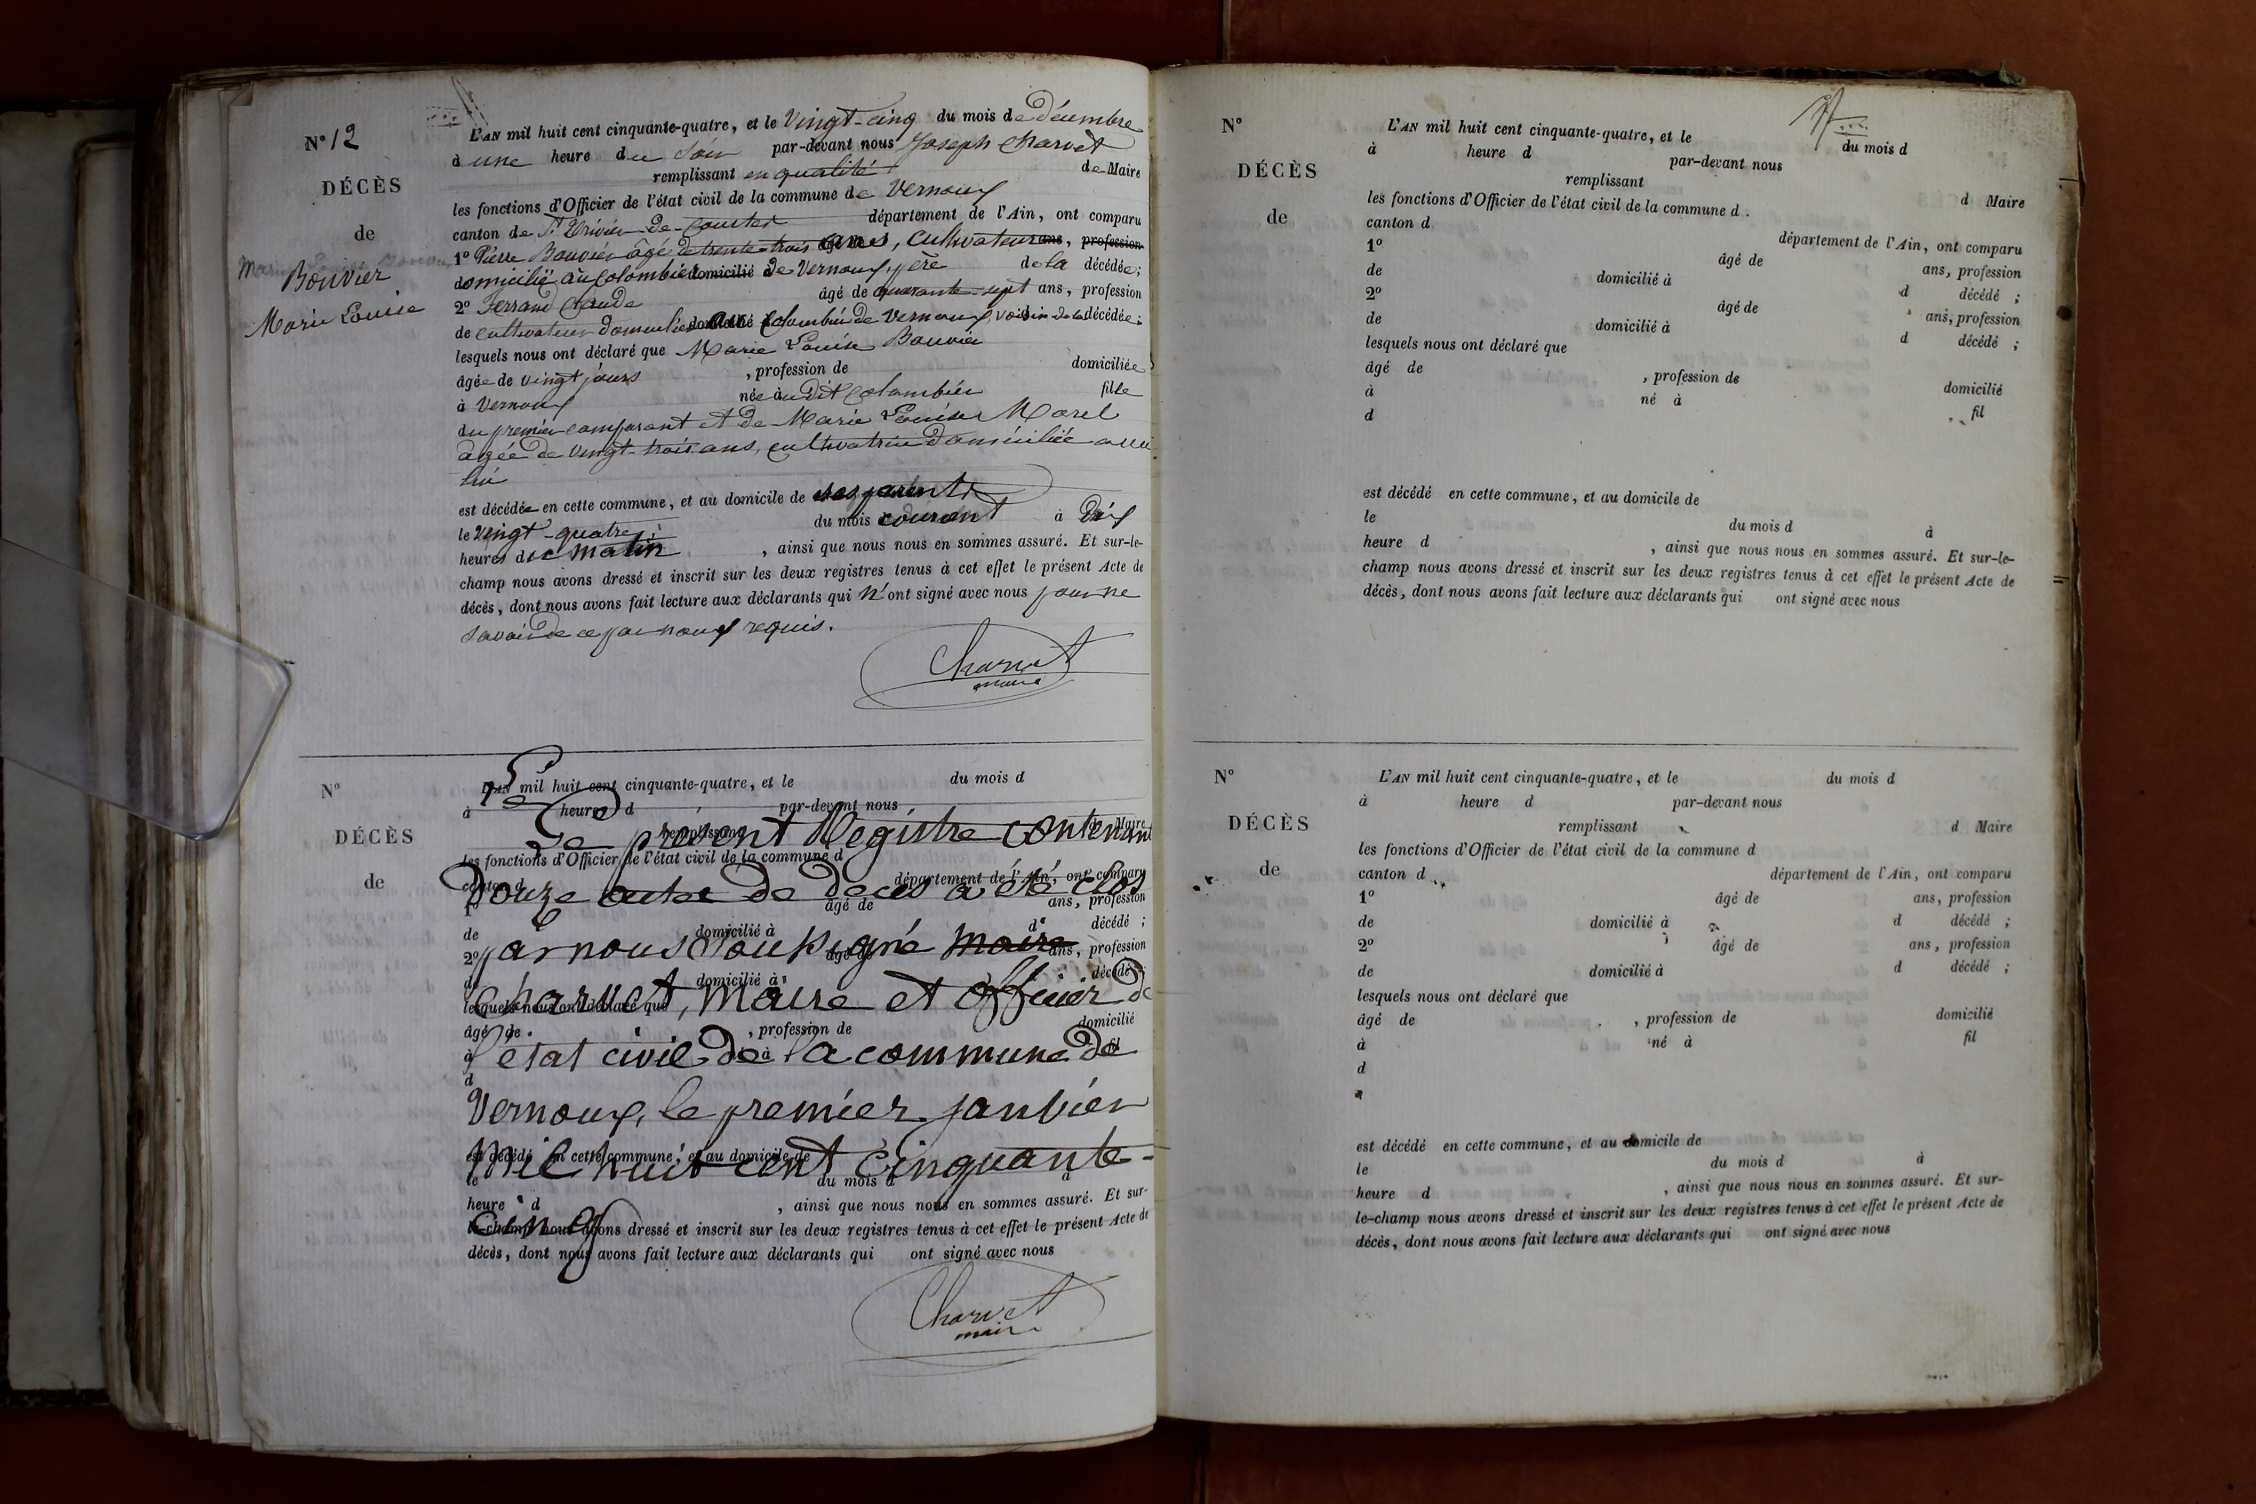 N° 12
DÉCÈS
de
Bouvier
Marie Louise
L'AN mil huit cent cinquante-quatre, et le vingt-cinq du mois de décembre
à une heure du soir par-devant nous Joseph Charvet
remplissant en qualité de Maire
les fonctions d'Officier de l'état civil de la commune de Vernoux
canton de St Trivier-de-Courtes département de l'Ain, ont comparu
1° Pierre Bouvier âgé de trente-trois ans, cultivateur ans, profession
domicilié au Colombier domicilié de Vernoux, père de la décédée;
2° Ferrand Claude âgé de quarante-sept ans, profession
de cultivateur domicilié domicilié Colombier de Vernoux, voisin de la décédée;
lesquels nous ont déclaré que Marie Louise Bouvier
âgée de vingt jours , profession de domiciliée
à Vernoux née au dit Colombier fille
du premier comparant et de Marie Louise Morel
agée de vingt-trois ans, cultivatrice domiciliée au
lieu
est décédée en cette commune, et au domicile de ses parents
le vingt-quatre du mois courant à dix
heures du matin , ainsi que nous nous en sommes assuré. Et sur-le-
champ nous avons dressé et inscrit sur les deux registres tenus à cet effet le présent Acte de
décès, dont nous avons fait lecture aux déclarants qui n'ont signé avec nous pour ne
savoir de ce par nous requis.
Charvet
maire
N°
DÉCÈS
de
L'AN mil huit cent cinquante-quatre, et le du mois d
à heure d par-devant nous
remplissant Maire
Le présent Registre contenant
les fonctions d'Officier de l'état civil de la commune d
canton d département de l'Ain, ont comparu
douze actes de décès a été clos
1° âgé de ans, profession
de domicilié à d décédé ;
par nous soussigné maire
2° âgé de ans, profession
d domicilié à décédé ;
Charvet, maire et officier de
lesquels nous ont déclaré que
âgé de , profession de domicilié
à à fil
l'état civil de la commune de
d
Vernoux, le premier janvier
mil huit cent cinquante-
est décédé en cette commune, et au domicile de
le du mois d à
heure d , ainsi que nous nous en sommes assuré. Et sur-
cinq
le-champ nous avons dressé et inscrit sur les deux registres tenus à cet effet le présent Acte de
décès, dont nous avons fait lecture aux déclarants qui ont signé avec nous
Charvet
maire
N°
DÉCÈS
de
L'AN mil huit cent cinquante-quatre, et le du mois d
à heure d par-devant nous
remplissant d Maire
les fonctions d'Officier de l'état civil de la commune d
canton d département de l'Ain, ont comparu
1° âgé de ans, profession
de domicilié à d décédé ;
2° âgé de ans, profession
de domicilié à d décédé ;
lesquels nous ont déclaré que
âgé de , profession de domicilié
à né à fil
d
est décédé en cette commune, et au domicile de
le du mois d à
heure d , ainsi que nous nous en sommes assuré. Et sur-le-
champ nous avons dressé et inscrit sur les deux registres tenus à cet effet le présent Acte de
décès, dont nous avons fait lecture aux déclarants qui ont signé avec nous
N°
DÉCÈS
de
L'AN mil huit cent cinquante-quatre, et le du mois d
à heure d par-devant nous
remplissant d Maire
les fonctions d'Officier de l'état civil de la commune d
canton d département de l'Ain, ont comparu
1° âgé de ans, profession
de domicilié à d décédé ;
2° âgé de ans, profession
de domicilié à d décédé ;
lesquels nous ont déclaré que
âgé de , profession de domicilié
à né à fil
d
est décédé en cette commune, et au domicile de
le du mois d à
heure d , ainsi que nous nous en sommes assuré. Et sur-
le-champ nous avons dressé et inscrit sur les deux registres tenus à cet effet le présent Acte de
décès, dont nous avons fait lecture aux déclarants qui ont signé avec nous